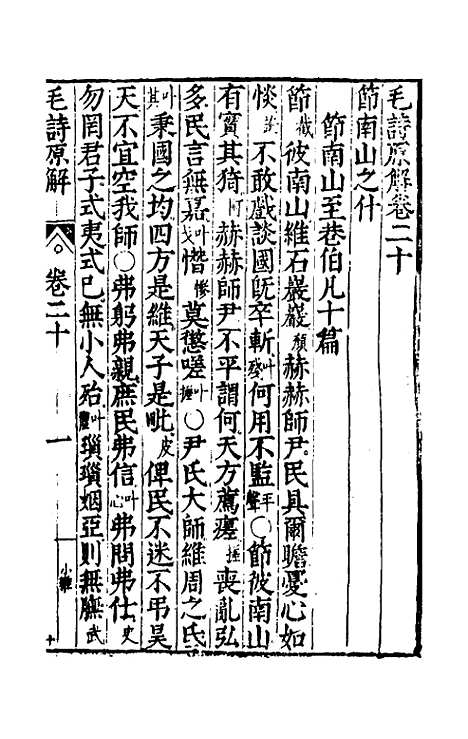 毛詩原解卷二十
節南山之什
節南山至巷伯凡十篇
節截彼南山維石巖巖顏赫赫師尹民具爾瞻憂心如
惔談不敢戲談國旣卒斬叶殘何用不監平聲○節彼南山
有實其猗阿赫赫師尹不平謂何天方薦瘥 喪亂弘
多民言無嘉叶戈憯慘莫懲嗟叶 ○尹氏大師維周之氐
其叶秉國之均四方是維天子是毗皮俾民不迷不弔昊
天不宜空我師○弗躬弗親庶民弗信叶心弗問弗仕史
勿罔君子式夷式已無小人殆叶 瑣瑣姻亞則無膴武
毛詩原解
卷二十
一
小雅